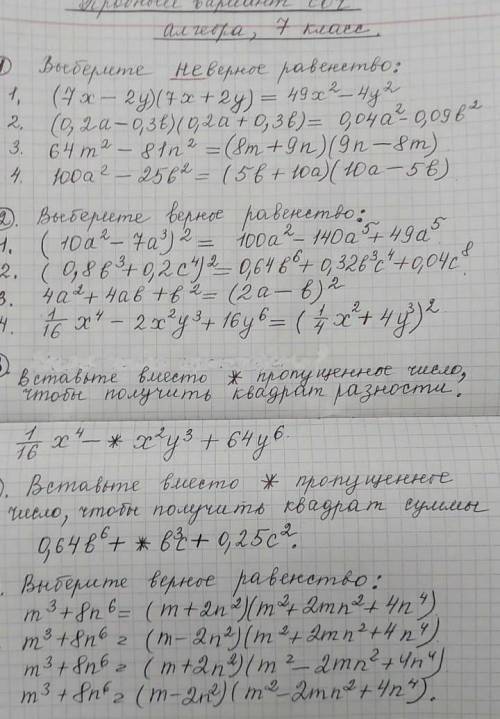 Пробный вариант СОЧ
алгебра, 7 класс.
1) Выберите неверное равенство:
1. (7x - 2y)(7x + 2y) = 49x² - 4y²
2. (0,2a - 0,3b)(0,2a + 0,3b) = 0,04a² - 0,09b²
3. 64m² - 81n² = (8m + 9n)(9n - 8m)
4. 100a² - 25b² = (5b + 10a)(10a - 5b)
2). Выберите верное равенство:
1. (10a² - 7a³)² = 100a² - 140a⁵ + 49a⁵
2. (0,8b³ + 0,2c⁴)² = 0,64b⁶ + 0,32b³c⁴ + 0,04c⁸
3. 4a² + 4ab + b² = (2a - b)²
4. 1/16 x⁴ - 2x²y³ + 16y⁶ = (1/4 x² + 4y³)²
Вставьте вместо * пропущенное число,
чтобы получить квадрат разности.
1/16 x⁴ - * x²y³ + 64y⁶
). Вставьте вместо * пропущенное
число, чтобы получить квадрат суммы
0,64b⁶ + * b³c + 0,25c².
. Выберите верное равенство:
m³ + 8n⁶ = (m + 2n²)(m² + 2mn² + 4n⁴)
m³ + 8n⁶ = (m - 2n²)(m² + 2mn² + 4n⁴)
m³ + 8n⁶ = (m + 2n²)(m² - 2mn² + 4n⁴)
m³ + 8n⁶ = (m - 2n²)(m² - 2mn² + 4n⁴).